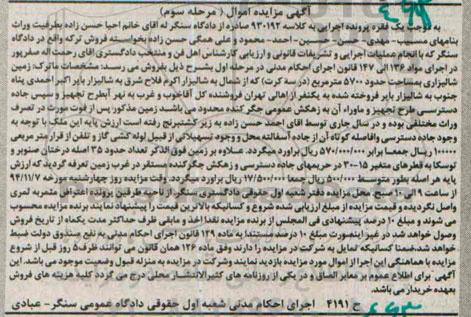 آگهی مزایده اموال ( مرحله سوم)
به موجب یک فقره پرونده اجرایی به کلاسه ۹۳۰۱۹۲ صادره از دادگاه سنگر له آقای خانم احیا حسن زاده بطرفیت وراث
بنامهای مسیب- مهدی- حسن- حسین- احمد- محمود و علی همگی حسن زاده بخواسته فروش ترکه واقع در دادگاه
سنگر که با انجام عملیات اجرایی و تشریفات قانونی و ارزیابی کارشناس اهل فن و منتخب دادگستری آقای رحمت اله صفرپور
در اجرای مواد ۱۳۶ الی ۱۴۷ قانون اجرای احکام مدنی در مرحله اول بشرح ذیل بفروش می رسد: مشخصات ماترک: زمین
شالیزاری بمساحت حدود ۵۷۰۰ مترمربع (در سه کرت) که از شمال به شالیزار اکرم فلاح شرق به شالیزار بایر اکبر احمدی پناه
جنوب به شالیزار بایر فروخته شده به یکنفر از اهالی تهران فروشنده کل آقاخوب و غرب به نهر آبطرح تجهیز و سپس جاده
دسترسی طرح تجهیز و ماوراء آن به زهکش عمومی جگر کنده محدود می باشید زمین مذکور پس از فوت مورث در تصرف
وراث مختلفی بوده و در سال جاری توسط آقای احمد حسن زاده به زیر کشت برنج رفته است ارزش پایه این ملک با توجه به
وجود جاده دسترسی وافاصله کوتاه آن از جاده آسفالته محل و وجود تسهیلاتی از قبیل لوله کشی گاز و تلفن از قرار متر مربعی
۱۰۰۰۰۰ ریال جمعا برابر ۵۷۰/۰۰۰/۰۰۰ ریال براورد میگردد. علاوه بر زمین فوق الذکر تعداد حدود ۳۵ اصله درختان صنوبر و
توسکا به قطرهای متغیر ۱۵-۳۰ در حریمهای جاده دسترسی و زهکش جگر کنده مستقر در غرب زمین تعرفه گردید که ارزش
پایه هر اصله بطور متوسط ۵۰۰/۰۰۰ ریال جمعا ۱۷/۵۰۰/۰۰۰ ریال براورد میگردد. وقت مزایده روز چهارشنبه مورخه ۹۴/۱۱/۷
از ساعت ۹ الی ۱۰ صبح محل مزایده دفتر شعبه اول حقوقی دادگستری سنگر از ناحیه طرفین پرونده اعتراض مثمربه ثمری
واصل نگردیده و قیمت مزایده از مبلغ ارزیابی شده شروع و کسانیکه بالاترین قیمت را پیشنهاد نمایند برنده مزایده محسوب
می شوند و مبلغ ۱۰ درصد پیشنهادی فی المجلس از برنده مزایده نقدا اخذ و مابقی ظرف حداکثر مدت یکماه از تاریخ فروش
وصول خواهد شد در غیر اینصورت مبلغ ۱۰ درصد مستندا به ماده ۱۲۹ قانون اجرای احکام مدنی به نفع صندوق دولت ضبط
خواهد شد. ضمنا کسانیکه تمایل به شرکت در مزایده را دارند وفق ماده ۱۲۶ همان قانون می توانند ظرف ۵ روز قبل از شروع
مزایده با هماهنگی این اجرا از اموال مورد مزایده بازدید نمایند وشرکت در مزایده به منزله قبول وضعیت موجود می باشد. این
آگهی برای اطلاع عموم بر معابر الصاق و در یکی از روزنامه های کثیرالانتشار محلی درج می گردد کلیه هزینه های فروش
بعهده خریدار می باشد.
ح ۴۱۹۱ اجرای احکام مدنی شعبه اول حقوقی دادگاه عمومی سنگر- عبادی